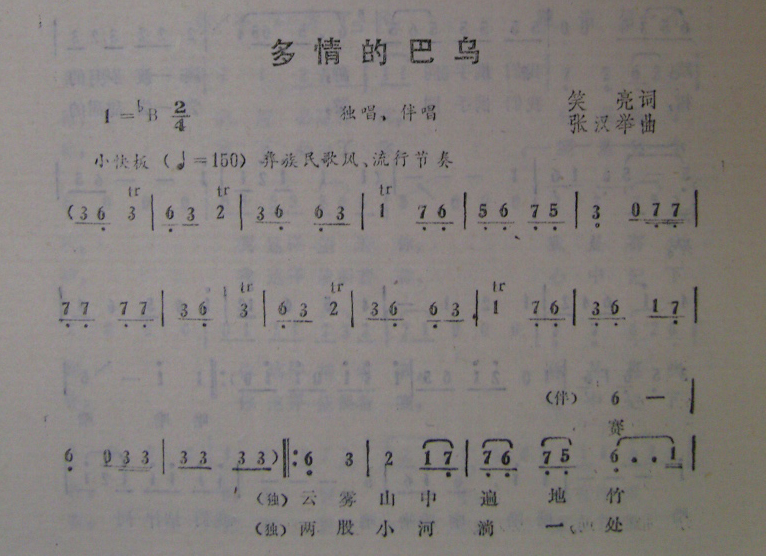 多情的巴乌
1=♭B 2/4
独唱、伴唱
笑 亮词
张汉举曲
小快板（♩=150）彝族民歌风、流行节奏
tr tr tr
(36 3 | 63 2 | 36 63 | 1 76 | 56 75 | 3 077 |
tr tr tr
77 77 | 36 3 | 63 2 | 36 63 | 1 76 | 36 17 |
（伴） 6 — |
赛
6 033 | 33 33) ‖: 6 3 | 2 17 | 76 75 | 6 . . 1 |
（独）云雾山中遍地竹
（独）两股小河淌一处